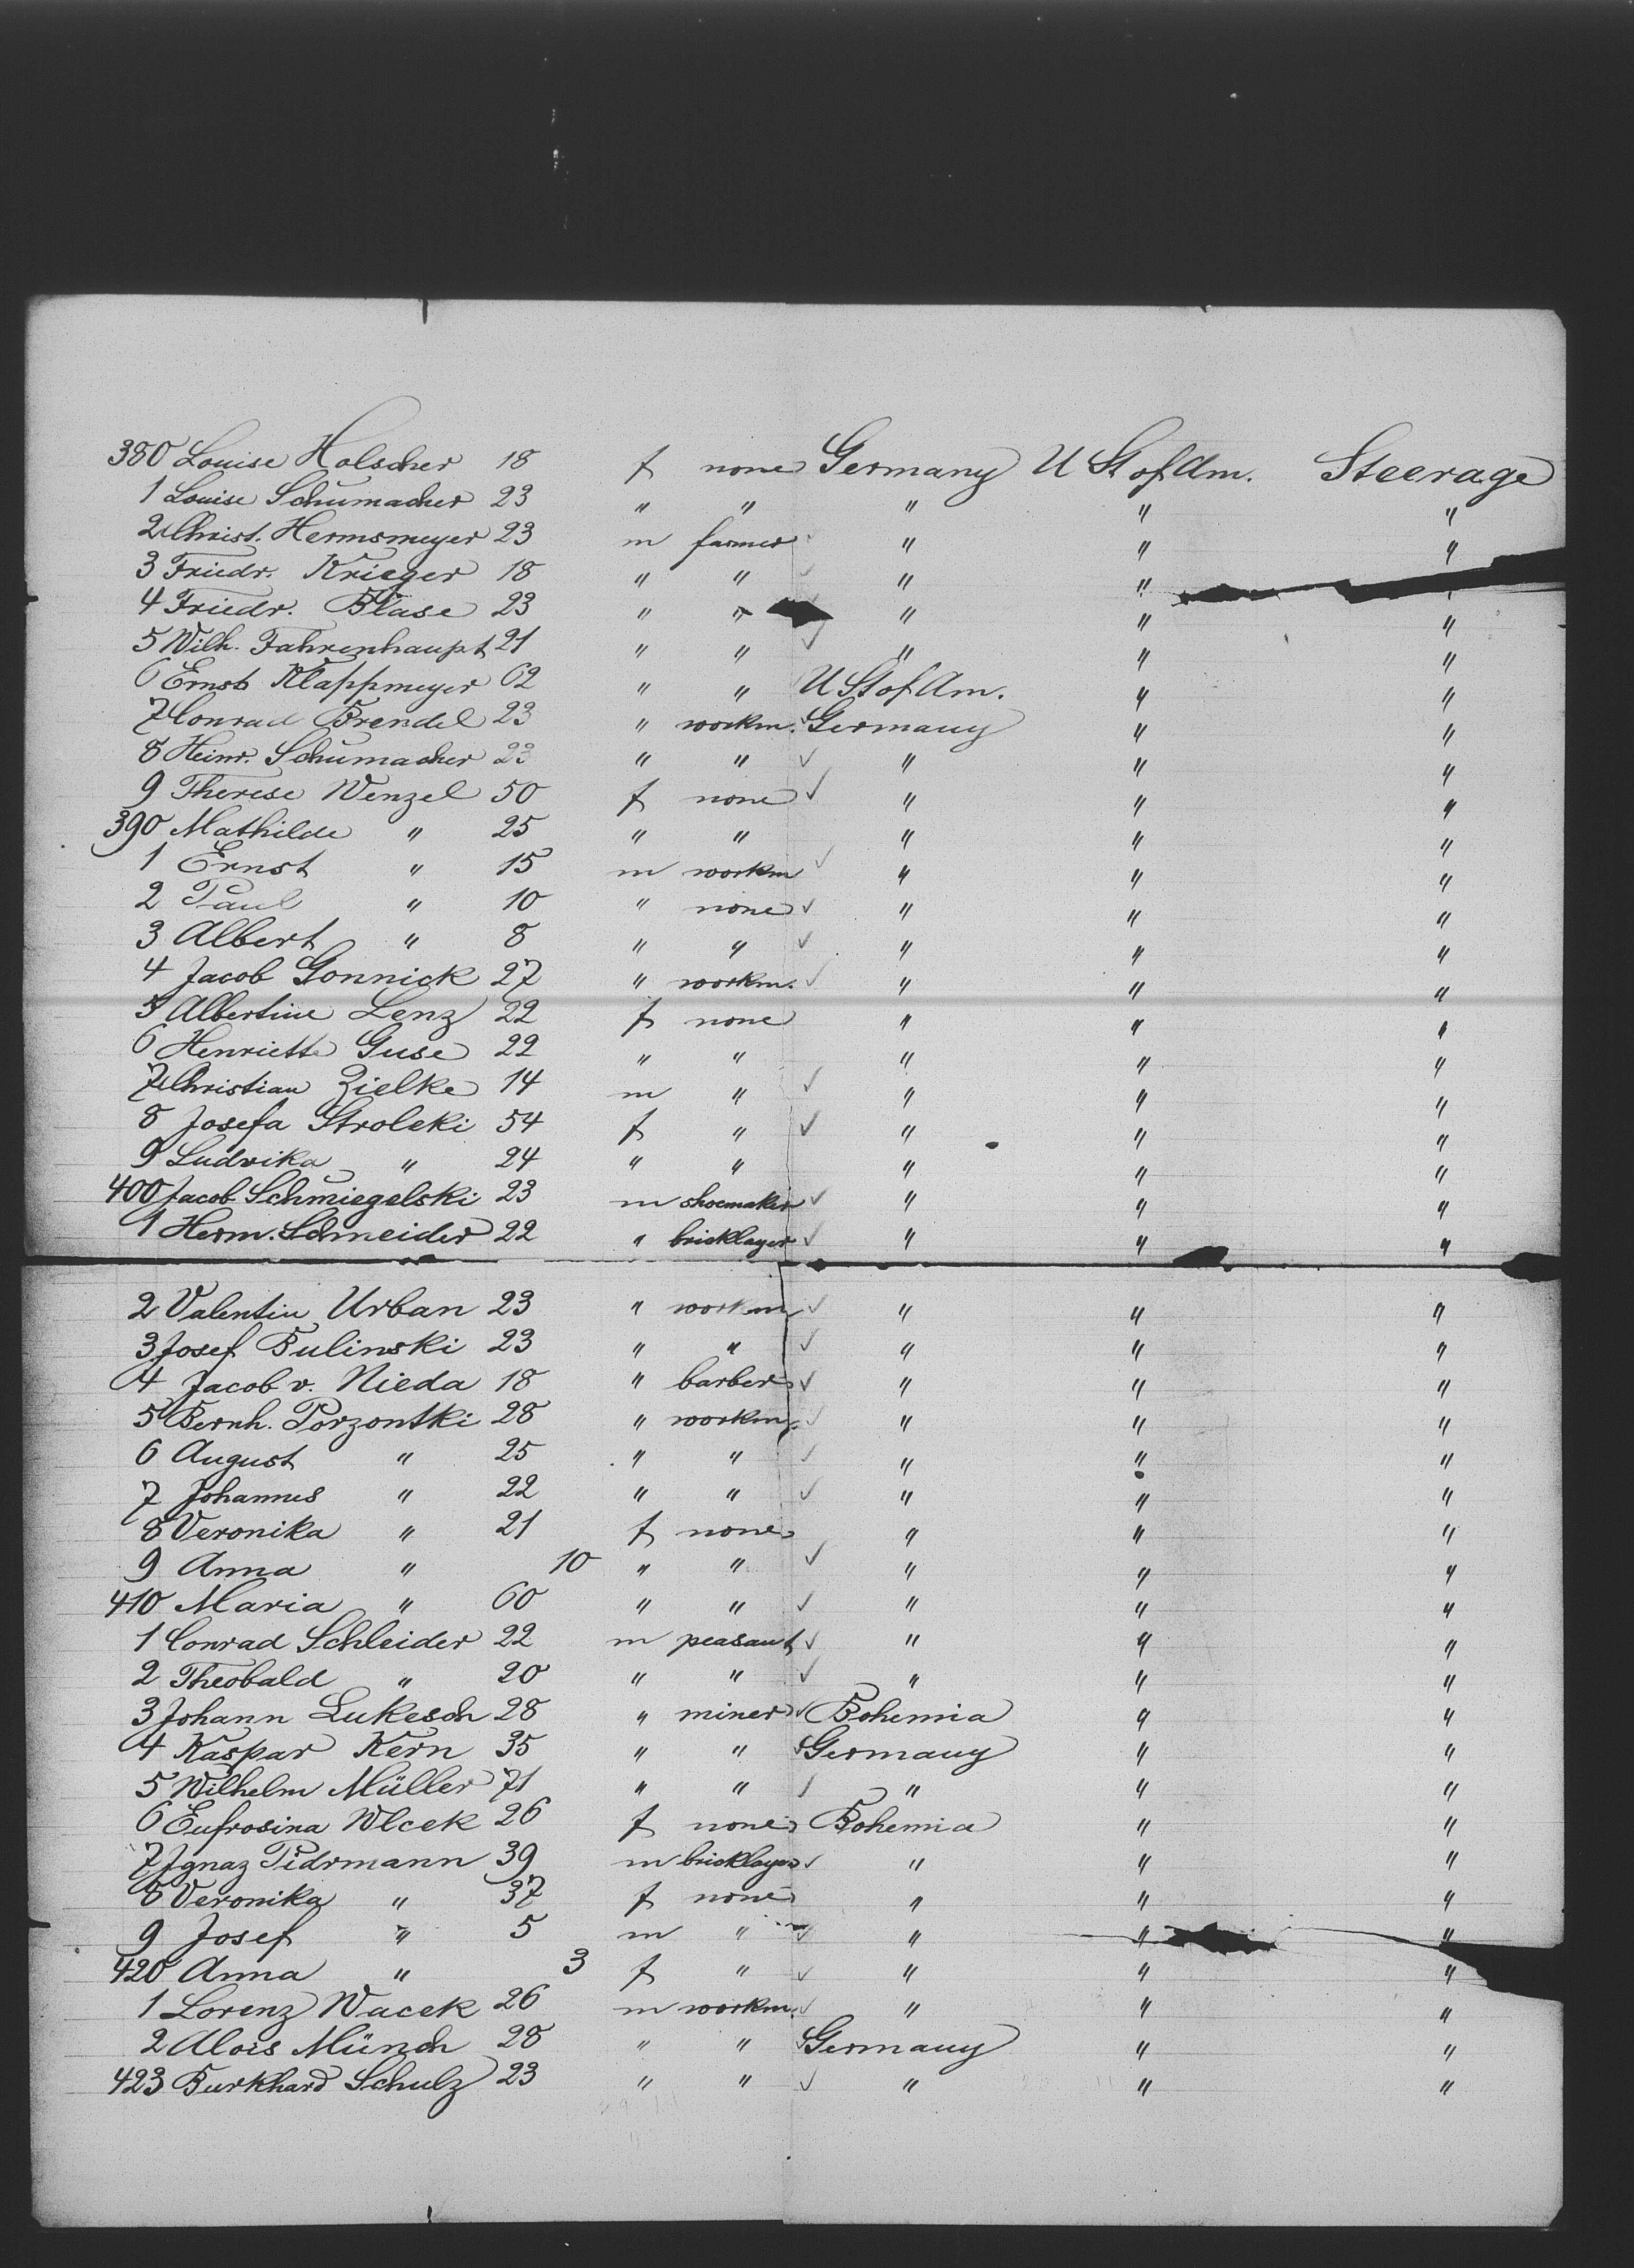 380 Louise Holscher 18 f none Germany U St of Am. Steerage
1 Louise Schumacher 23 " " " " "
2 Christ. Hermsmeyer 23 m farmer " " "
3 Friedr. Krieger 18 " " " "
4 Friedr. Blase 23 " " " " "
5 Wilh. Fahrenhaupt 21 " " " " "
6 Ernst Klappmeyer 62 " " U St of Am. " "
7 Conrad Brendel 23 " workm. Germany " "
8 Heinr. Schumacher 23 " " " " "
9 Therese Wenzel 50 f none " " "
390 Mathilde " 25 " " " " "
1 Ernst " 15 m workm " " "
2 Paul " 10 " none " " "
3 Albert " 8 " " " " "
4 Jacob Gonnick 27 " workm. " " "
5 Albertine Lenz 22 f none " " "
6 Henriette Guse 22 " " " " "
7 Christian Zielke 14 m " " " "
8 Josefa Stroleki 54 f " " " "
9 Ludvika " 24 " " " " "
400 Jacob Schmiegelski 23 m shoemaker " " "
1 Herm. Schneider 22 " bricklayer " " "
2 Valentin Urban 23 " workm " " "
3 Josef Bulinski 23 " " " " "
4 Jacob v. Nieda 18 " barber " " "
5 Bernh. Porzontki 28 " workm. " " "
6 August " 25 " " " " "
7 Johannes " 22 " " " " "
8 Veronika " 21 f none " " "
9 Anna " 10 " " " " "
410 Maria " 60 " " " " "
1 Conrad Schleider 22 m peasant " " "
2 Theobald " 20 " " " " "
3 Johann Lukesch 28 " miner Bohemia " "
4 Kaspar Kern 35 " " Germany " "
5 Wilhelm Müller 71 " " " " "
6 Eufrosina Wlcek 26 f none Bohemia " "
7 Ignaz Pidrmann 39 m bricklayer " " "
8 Veronika " 37 f none " " "
9 Josef " 5 m " " " "
420 Anna " 3 f " " " "
1 Lorenz Wacek 26 m workm. " " "
2 Alois Münch 28 " " Germany " "
423 Burkhard Schulz 23 " " " " "